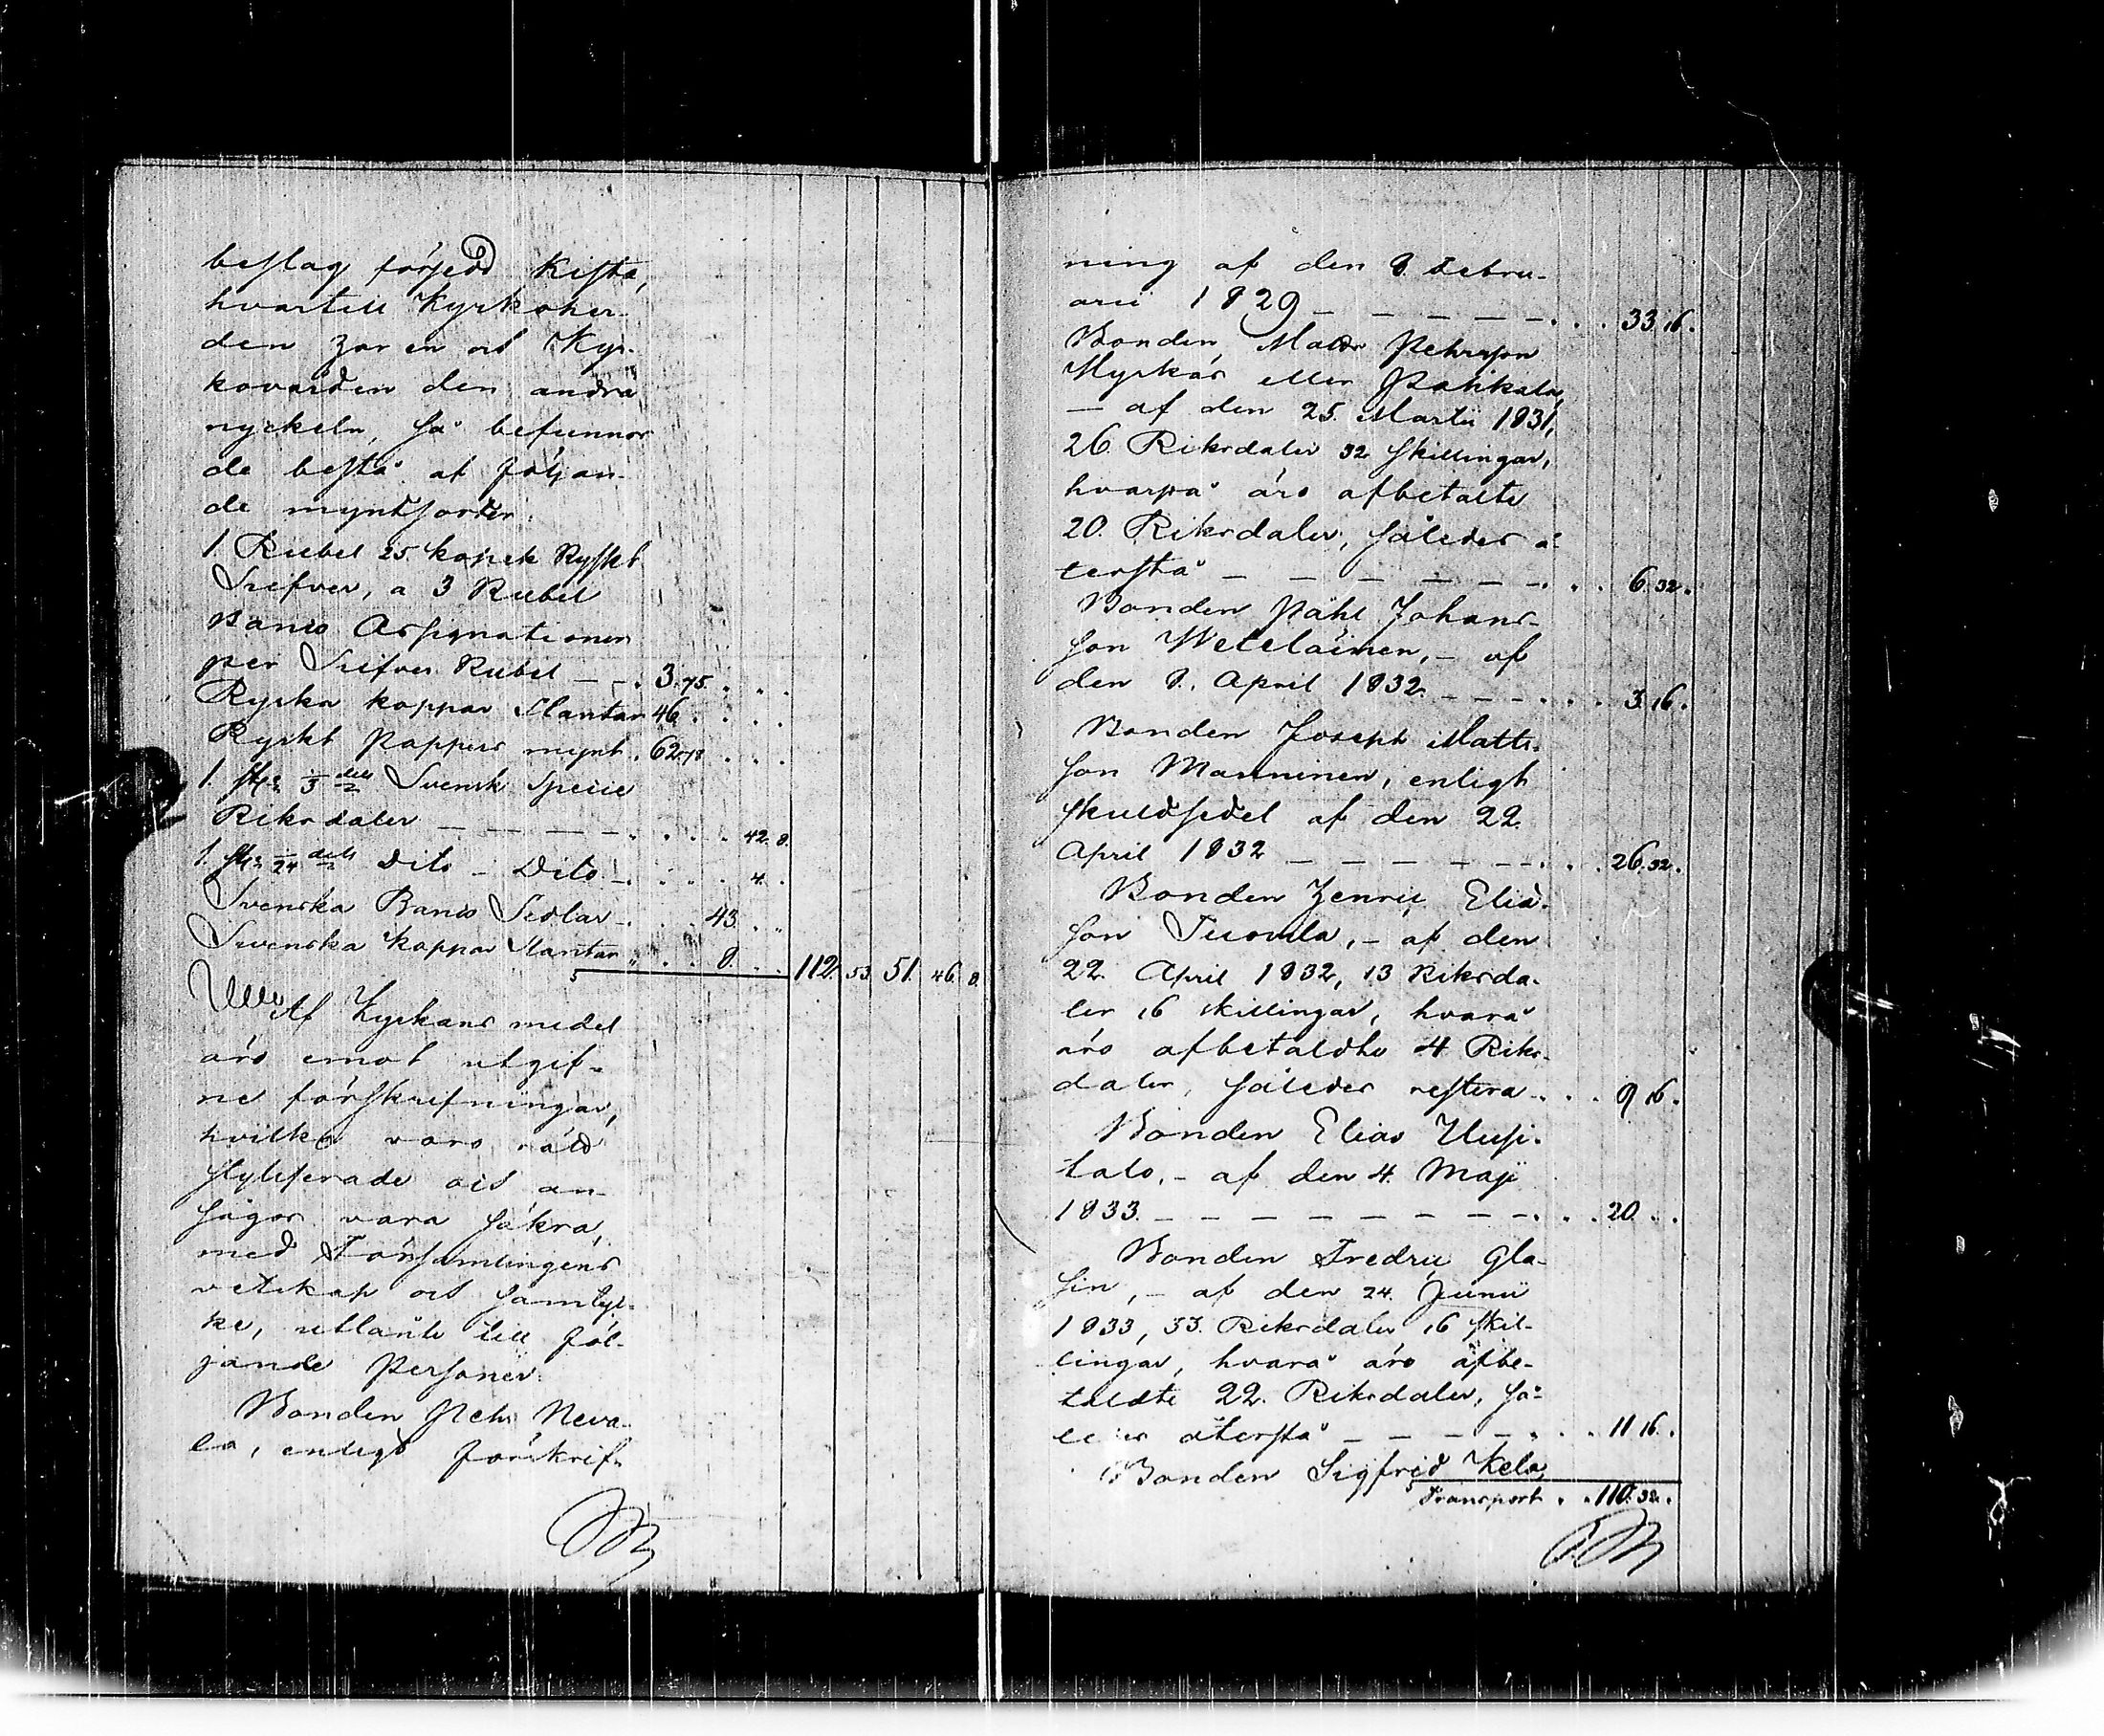 beslag försedd Kista,
hvartill Kyrkoher-
den har en och Kyr-
kovärden den andra
nyckeln, så befunnos
de bestå af följan-
de myntsorter:
1. Rubel 25. kopek Ryskt
Silfver, a 3 Rubel
Banco Assignationer
per Silfver Rubel — — . 3.75. . . .
Ryska koppar Slantar 46. . . .
Ryskt Pappers mynt . 62.78 . . .
1. st: 1/3 dels Svensk Specie
Riksdaler — — — — — . . . . 42. 8.
1. st: 1/24 dels Dito — Dito — . . . . 4. .
Svenska Banco Sedlar — . . . 43. . .
Svenska koppar Slantar „ . . 8. . . 112. 53. 51. 46. 8.
Af Kyrkans medel
äro emot utgif-
ne förskrifningar,
hvilka voro
styliserade och an-
sågos vara säkra,
med Församlingens
vetskap och samtyc-
ke, utlånte till föl-
jande Personer:
Bonden Pehr Neva-
la, enligt förskrif-
ning af den 8. Febru-
arii 1829 — — — — — . . . 33.16.
Bonden Matts Pehrsson
Myrkäs eller Pahikala,
— af den 25 Martii 1831,
26. Riksdaler 32. skillingar,
hvarpå äro afbetalte
20. Riksdaler, således å-
terstå — — — — — — . . . 6.32.
Bonden Påhl Johans-
son Weteläinen, — af
den 8. April 1832. — — — . . . 3.16.
Bonden Joseph Matts-
son Manninen, enligt
skuldsedel af den 22.
April 1832 — — — — — . . . 26.32.
Bonden Henric Elia-
son Tuomla, — af den
22. April 1832, 13 Riksda-
ler 16 skillingar, hvarå
äro afbetaldte 4 Riks-
daler, således restera . . . 9.16.
Bonden Elias Uusi-
talo, — af den 4. Maji
1833. — — — — — — — . . . 20. . .
Bonden Fredric Gla-
sin, — af den 24. Junii
1833, 33. Riksdaler 16 skil-
lingar, hvarå äro afbe-
taldte 22. Riksdaler, så-
ledes återstå — — — — . . . 11.16. .
Bonden Sigfrid Kela,
Transport . . 110.32.